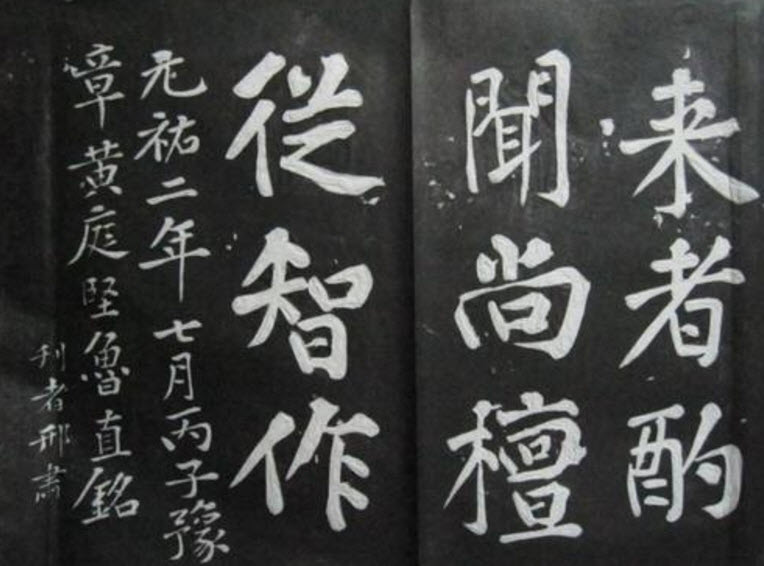 来者酌
聞尚檀
從智作
元祐二年七月丙子豫
章黄庭堅魯直銘
刊者邢肅